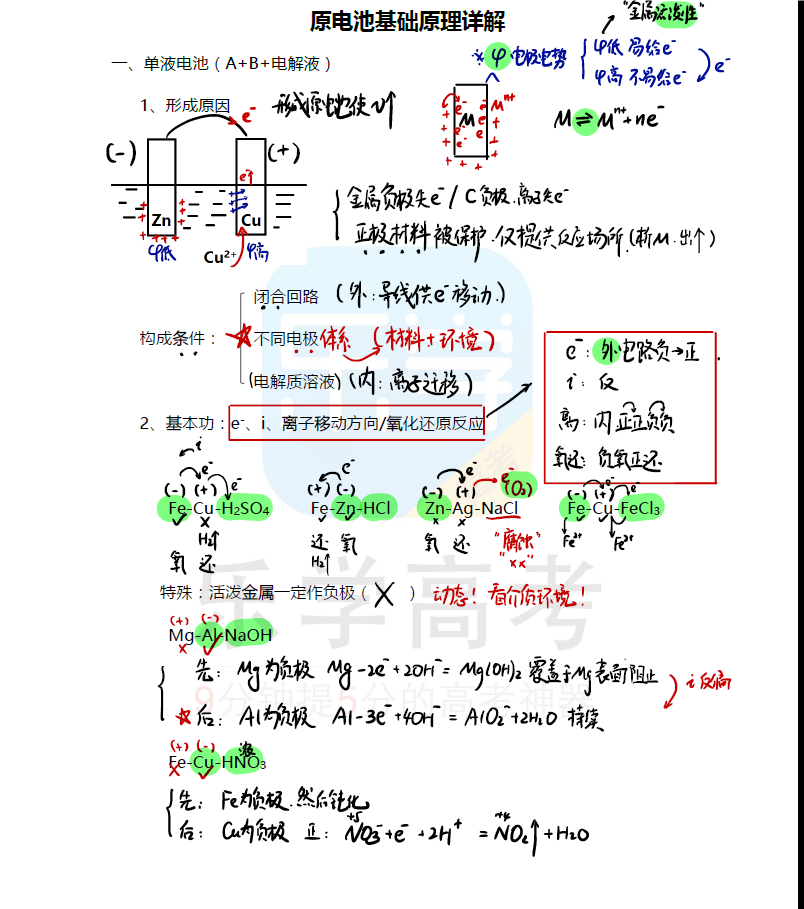 原电池基础原理详解
"金属活泼性"
一、单液电池（A+B+电解液）
※φ电极电势
φ低 易给e⁻
φ高 不易给e⁻
e⁻
1、形成原因
e⁻
形成原电池使v↑
e⁻ e⁻ Mⁿ⁺
M
M⇌Mⁿ⁺+ne⁻
(-) (+)
e⁻↑
Zn Cu
φ低 Cu²⁺ φ高
金属负极失e⁻/C负极.离子失e⁻
正极材料被保护.仅提供反应场所.(析M.出个)
闭合回路 (外:导线供e⁻移动.)
构成条件： ★不同电极体系 (材料+环境)
(电解质溶液) (内:离子迁移)
e⁻: 外电路负→正
i: 反
离: 内正正负负
氧还: 负氧正还
2、基本功：e⁻、i、离子移动方向/氧化还原反应
i
e⁻ e⁻ e⁻ e⁻ e⁻ e⁻ e⁻
(-) (+) (+) (-) (-) (+) (O₂) (-) (+)
Fe-Cu-H₂SO₄ Fe-Zn-HCl Zn-Ag-NaCl Fe-Cu-FeCl₃
H₂↑ 还 氧 氧 还 "腐蚀" Fe²⁺ Fe²⁺
氧 还 H₂↑ "××"
特殊：活泼金属一定作负极（ X ） 动态! 看介质环境!
(+) (-)
Mg-Al-NaOH
先: Mg为负极 Mg-2e⁻+2OH⁻=Mg(OH)₂ 覆盖于Mg表面阻止
i反向
☆后: Al为负极 Al-3e⁻+4OH⁻=AlO₂⁻+2H₂O 持续
(+) (-) 浓
Fe-Cu-HNO₃
先: Fe为负极.然后钝化
+5 +4
后: Cu为负极 正: NO₃⁻+e⁻+2H⁺=NO₂↑+H₂O
乐学高考
9分钟提5分的高考神器